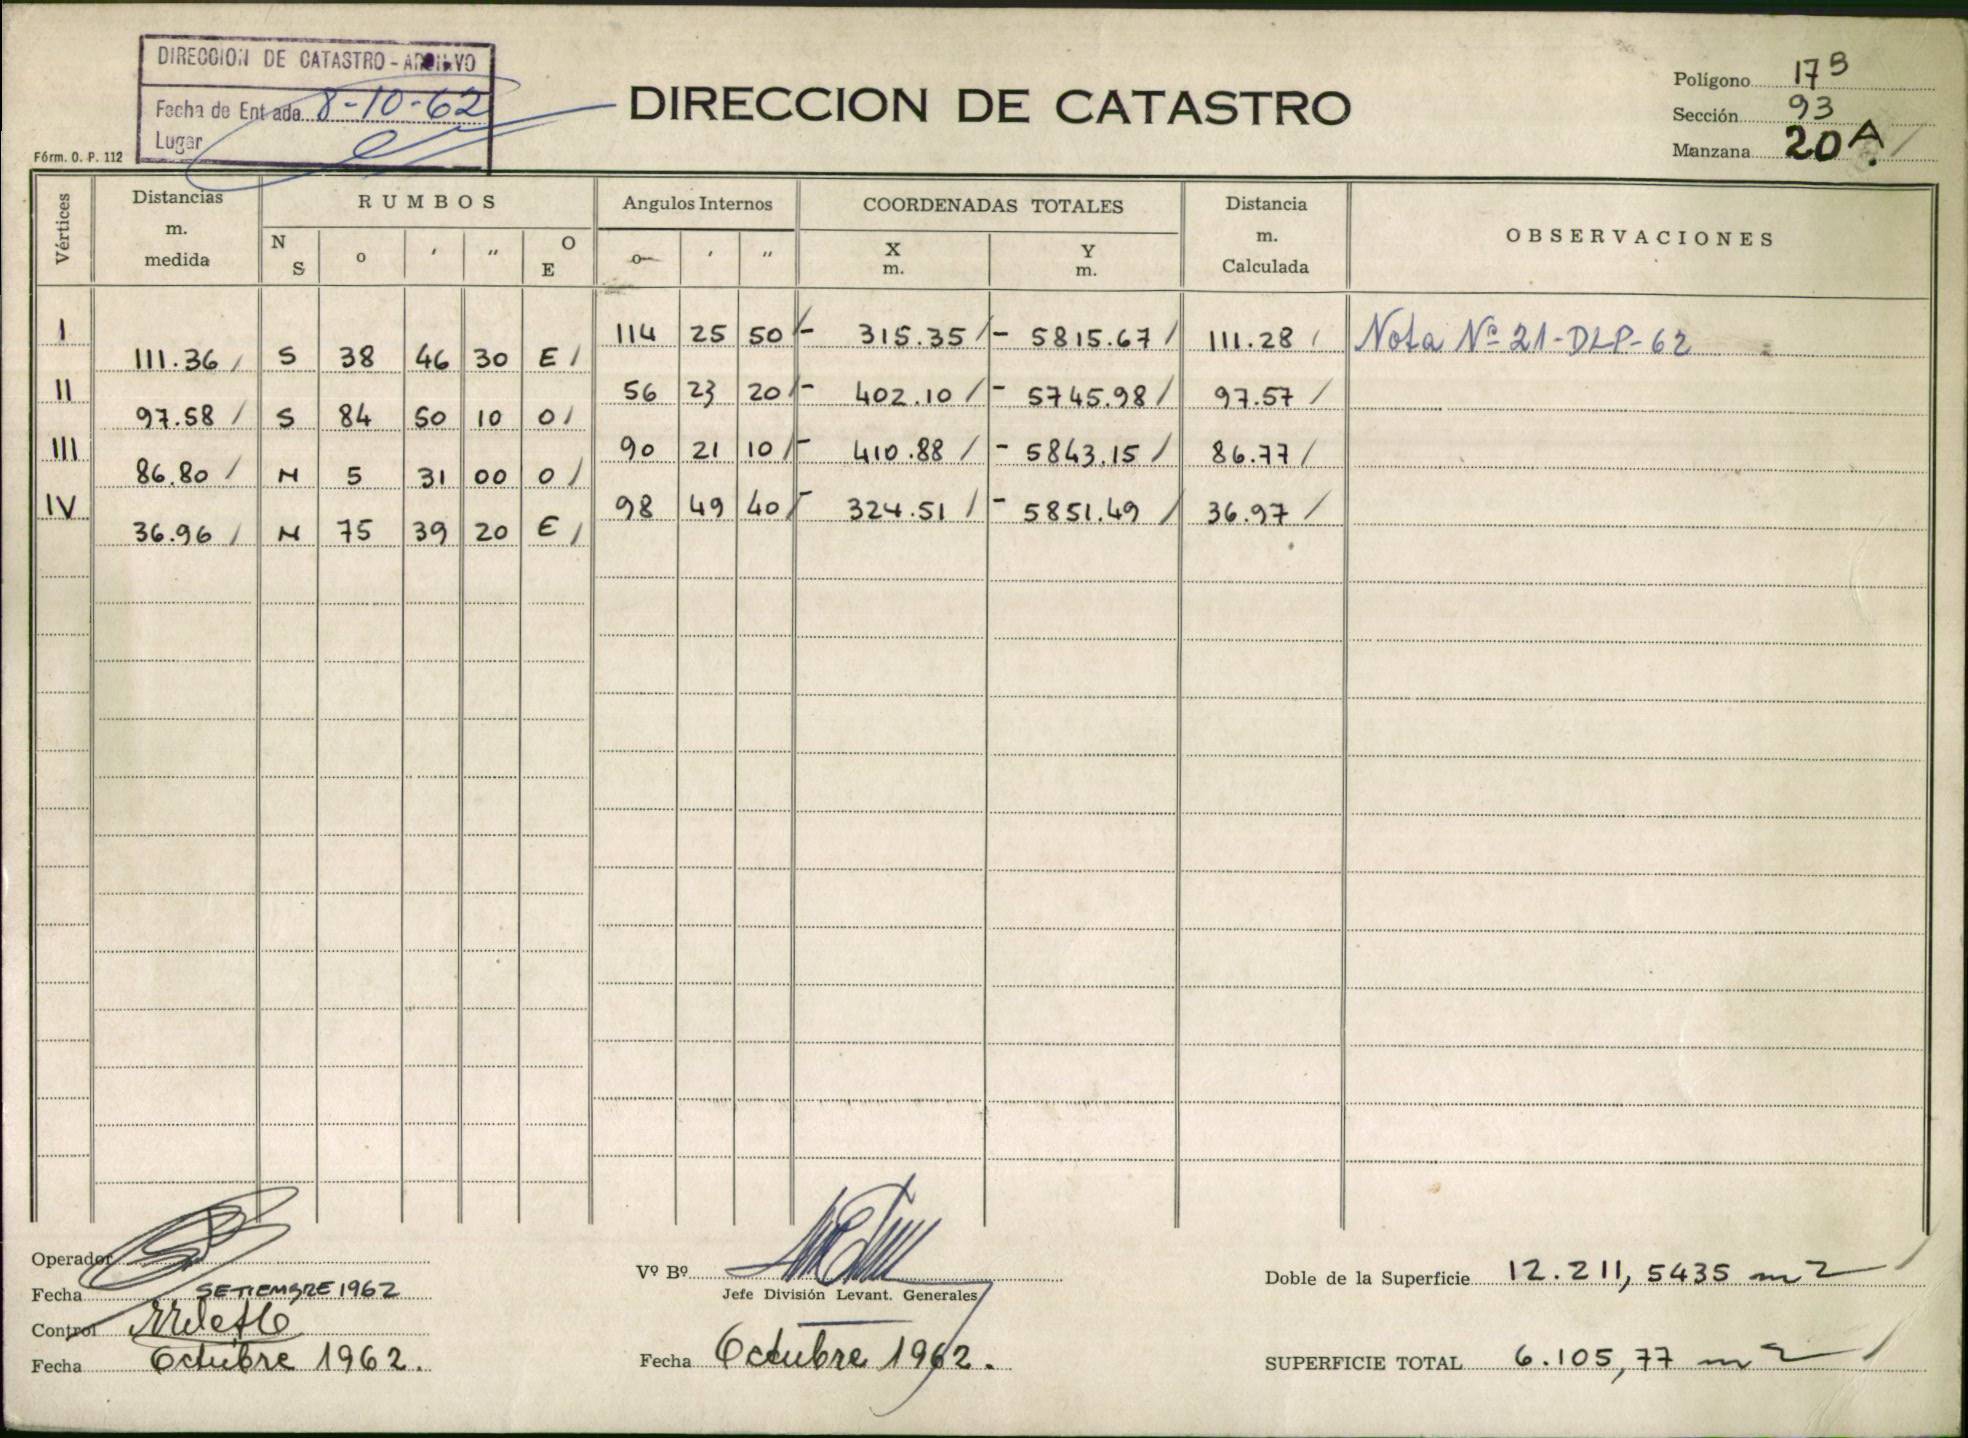 DIRECCION DE CATASTRO - ARCHIVO
Fecha de Entrada 8-10-62
Lugar
Fórm. O. P. 112
DIRECCION DE CATASTRO
Polígono 17 B
Sección 93
Manzana 20 A
Vértices
Distancias m. medida
RUMBOS
N S
o
′
″
O E
Angulos Internos
o
′
″
COORDENADAS TOTALES
X m.
Y m.
Distancia m. Calculada
OBSERVACIONES
I 114 25 50 - 315.35 - 5815.67 111.28 Nota Nº 21-DLP-62
111.36 S 38 46 30 E
II 56 23 20 - 402.10 - 5745.98 97.57
97.58 S 84 50 10 O
III 90 21 10 - 410.88 - 5843.15 86.77
86.80 N 5 31 00 O
IV 98 49 40 - 324.51 - 5851.49 36.97
36.96 N 75 39 20 E
Operador
Fecha SETIEMBRE 1962
Control
Fecha Octubre 1962.
Vº Bº
Jefe División Levant. Generales
Fecha Octubre 1962.
Doble de la Superficie 12.211,5435 m2
SUPERFICIE TOTAL 6.105,77 m2